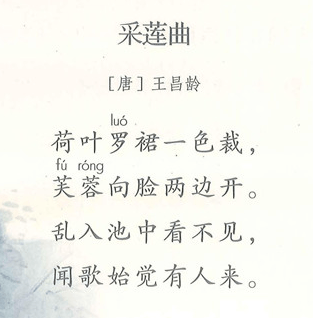 采莲曲
［唐］王昌龄
luó
荷叶罗裙一色裁，
fú róng
芙蓉向脸两边开。
乱入池中看不见，
闻歌始觉有人来。